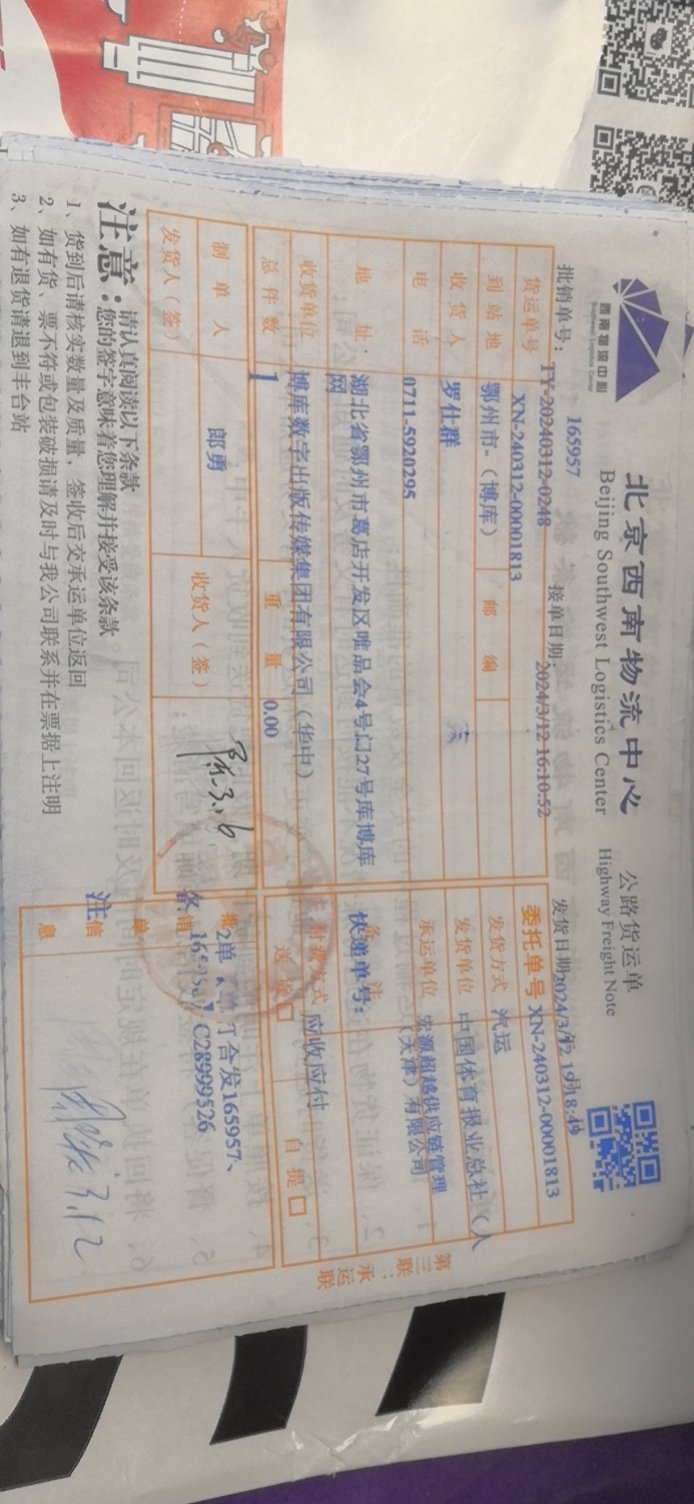 西南物流中心
Southwest Logistics Center
北京西南物流中心
公路货运单
Beijing Southwest Logistics Center
Highway Freight Note
批销单号: 165957
接单日期: 2024/3/12 16:10:52
发货日期
货运单号
TY-20240312-0248
XN-240312-00001813
委托单号 XN-240312-00001813
到站地 鄂州市-(博库)
邮编
发货方式 汽运
收货人 罗仕群
发货单位 中国体育报业总社(人
电话 0711-5920295
承运单位 宏源超越供应链管理
(天津)有限公司
地址: 湖北省鄂州市葛店开发区唯品会4号门27号库博库
网
快递单号:
收货单位 博库数字出版传媒集团有限公司(华中)
应收应付
总件数 1
重量 0.00
送货 □
自提 □
制单人 郎勇
收货人(签)
发货人(签)
合发165957、
C28999526
3.12
第三联:承运联
注意:
请认真阅读以下条款
您的签字意味着您理解并接受该条款
1、货到后请核实数量及质量,签收后交承运单位返回
2、如有货、票不符或包装破损请及时与我公司联系并在票据上注明
3、如有退货请退到丰台站